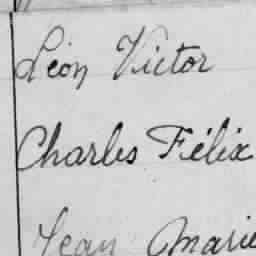 Léon Victor
Charles Félix
Jean Marie